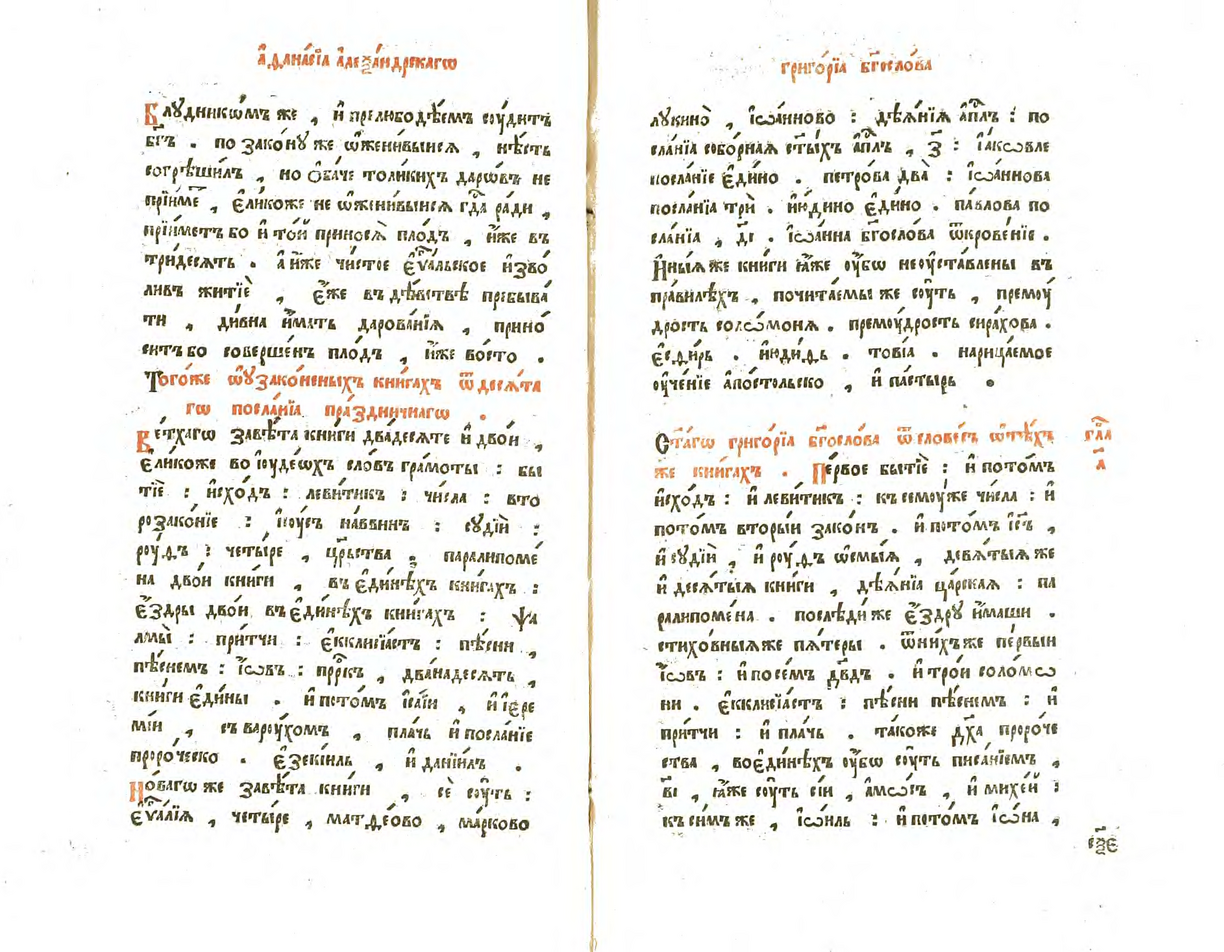 а҆ѳана́сїа а҆леѯа́ндрскагѡ
Блудникѡ́мъ же , и҆ прелюбодѣ́емъ сѹ́дитъ
бг҃ъ . по зако́ну же ѡ҆жени́выисѧ , нѣ́сть
согрѣши́лъ , но ѻ҆ба́че толи́кихъ даро́въ не
прїи́ме , є҆ли́коже не ѡ҆жени́выисѧ гд҇а ра́ди ,
прїи́метъ бо и҆ то́й приносѧ̀ пло́дъ , и҆́же въ
три́десѧть . а҆ и҆́же чи́стое є҆ѵⷢ҇альское и҆зво́
ливъ житїѐ , є҆́же въ дѣ́вствѣ пребыва́
ти , ди́вна и҆́мать дарова́нїѧ , прино́
ситъ бо соверше́нъ пло́дъ , и҆́же во́сто .
Того́же ѡ҆ ѹ҆зако́неныхъ кни́гахъ ѿ десѧ́та
гѡ посла́нїа пра́здничнагѡ .
Ве́тхагѡ завѣ́та кни́ги два́десѧте и҆ двои̑ ,
є҆ли́коже во і҆ѹде́ѡхъ сло́въ гра́моты : бы
тїѐ : и҆схо́дъ : леви́тикъ : чи́сла : вто
розако́нїе : і҆иѹ́съ на́ввинъ : сѹді́й :
рѹ́ѳъ : четы́ре , црⷭ҇тва . паралипоме́
на двои̑ кни́ги , въ є҆ди́нѣхъ кни́гахъ :
є҆́здры двои̑ въ є҆ди́нѣхъ кни́гахъ : ѱа
лмы̀ : при́тчи : є҆кклисїа́стъ : пѣ́сни ,
пѣ́снемъ : і҆́ѡвъ : прⷪ҇ркъ , двана́десѧть ,
кни́ги є҆ди́ны . и҆ пото́мъ і҆са́їи , и҆ і҆ере
мі́и , съ варѹ́хомъ , пла́чь и҆ посла́нїе
проро́ческо . є҆зекі́иль , и҆ данїи́лъ .
Но́вагѡ же завѣ́та кни́ги , сѐ сѹ́ть :
є҆ѵⷢ҇алїѧ , четы́ре , матѳе́ово , ма́рково
григо́рїа бг҃осло́ва
лукино̀ , і҆ѡа́нново : дѣѧ́нїѧ а҆пⷭ҇лъ : по
сла́нїа собо́рнаѧ ст҃ы́хъ а҆пⷭ҇лъ , з҃ : і҆а́кѡвле
посла́нїе є҆ди́но . петро́ва два̀ : і҆ѡа́ннова
посла́нїа трѝ . и҆ю́дино є҆ди́но . па́влова по
сла́нїа , д҃і . і҆ѡа́нна бг҃осло́ва ѿкрове́нїе .
И҆ны́ѧ же кни́ги ꙗ҆́же ѹ҆́бѡ неѹ҆ста́влены въ
пра́вилѣхъ , почита́емы же сѹ́ть , премѹ́
дрость соломо́нѧ . премѹ́дрость сира́хова .
є҆сѳи́рь . и҆юди́ѳь . тові́а . нарица́емое
ѹ҆че́нїе а҆по́стольско , и҆ па́стырь .
Ст҃а́гѡ григо́рїа бг҃осло́ва ѿ слове́съ ѡ҆ тѣ́хъ
же кни́гахъ . Пе́рвое бытїѐ : и҆ пото́мъ
и҆схо́дъ : и҆ леви́тикъ : къ семѹ́же чи́сла : и҆
пото́мъ вторы́и зако́нъ . и҆ пото́мъ і҆с҃ъ ,
и҆ сѹді́й , и҆ рѹ́ѳъ ѻ҆смы́ѧ , девѧ́тыѧ же
и҆ десѧ́тыѧ кни́ги , дѣѧ́нїа ца́рскаѧ : па
ралипоме́на . послѣди́же є҆́здру и҆́маши .
стихо́вныѧ же пѧ́теры . ѿ ни́хъже пе́рвыи
і҆́ѡвъ : и҆ по се́мъ дв҃дъ . и҆ трои̑ соло́мѡ
ни . є҆кклисїа́стъ : пѣ́сни пѣ́снемъ : и҆
при́тчи : и҆ пла́чь . та́коже дх҃а проро́че
ства , во є҆ди́нѣхъ ѹ҆́бѡ сѹ́ть писа́нїемъ ,
в҃і , ꙗ҆́же сѹ́ть сі́и , а҆мо́съ , и҆ михе́й :
къ си́мъ же , і҆ѡи́ль : и҆ пото́мъ і҆ѡ́на ,
гла҃
а҃